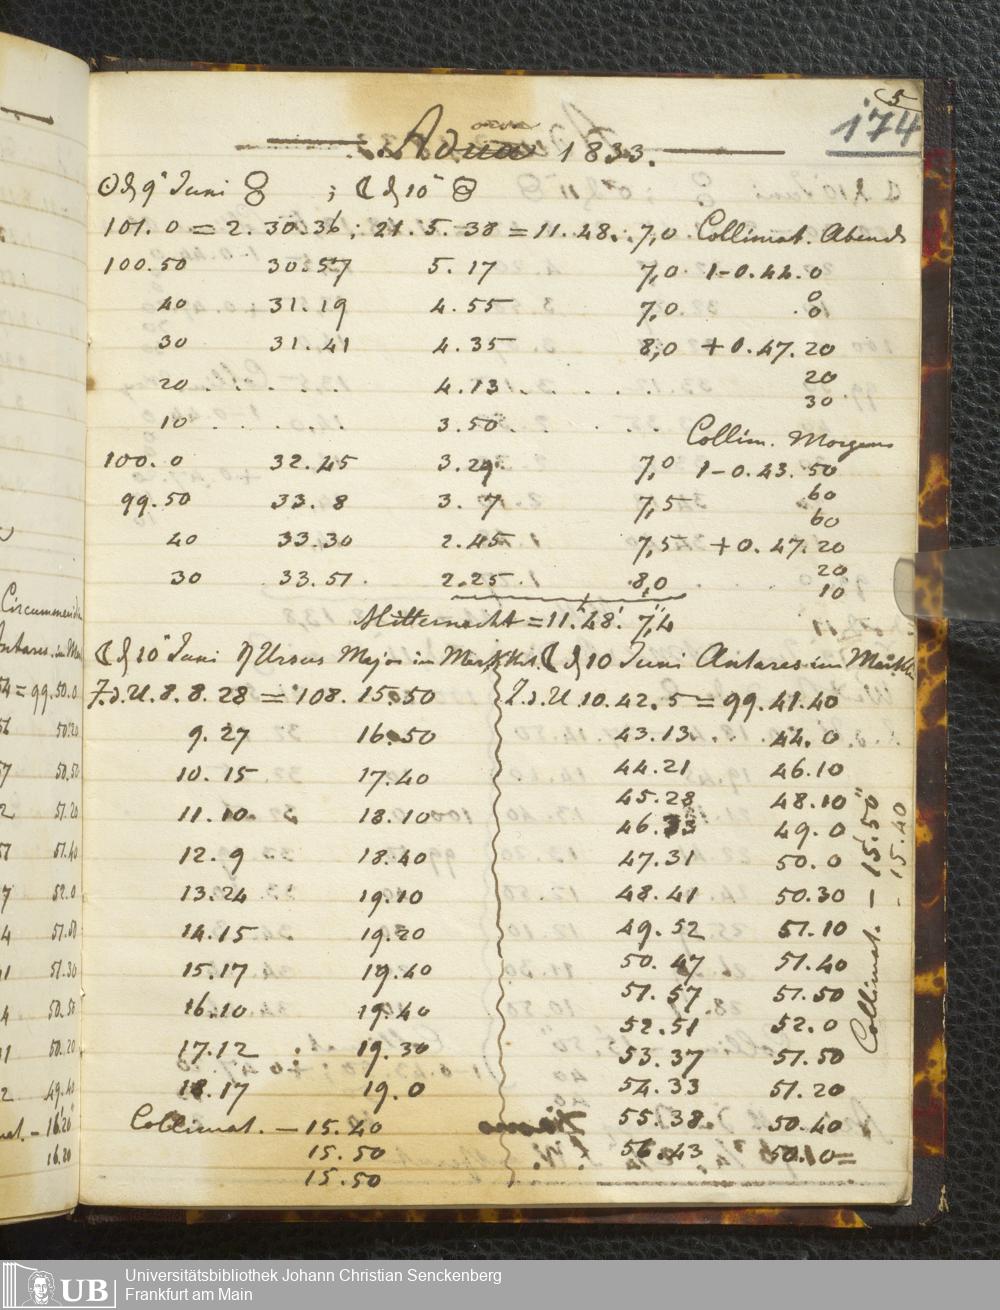 5
174
Adua 1833.
☉ d 9n Juni ☿ ; ☾ d 10n
101. 0 = 2. 30.36; 21. 5. 38 = 11. 48. 7,0. Collimat. Abends
100.50 30.57 5. 17 7,0. 1-0.44. 0
40 31. 19 4. 55 7,0. 0
0
30 31. 41 4. 35 8,0 + 0. 47. 20
20 . . . . . 4. 13. . . . . 20
30
10 . . . . . 3. 50. . . . .
Collim. Morgens
100. 0 32. 45 3. 29 7,0 1-0. 43. 50
99. 50 33. 8 3. 7 7,5 60
60
40 33. 30 2. 45 7,5 + 0. 47. 20
30 33. 51. 2. 25. 8,0 20
10
Mitternacht = 11. 48. 7,4
☾ d 10n Juni η Ursus Major im Merkkr.
Z.d.U. 8. 8. 28 = 108. 15. 50
9. 27 16. 50
10. 15 17. 40
11. 10. 18. 10
12. 9 18. 40
13. 24 19. 10
14. 15 19. 20
15. 17 19. 40
16. 10 19. 40
17. 12 19. 30
18. 17 19. 0
Collimat. - 15. 40
15. 50
15. 50
☾ d 10 Juni Antares im Merkkr
Z.d.U. 10. 42. 5 = 99. 41. 40
43. 13. 44. 0
44. 21 46. 10
45. 28 48. 10
46. 33 49. 0
47. 31 50. 0
48. 41 50. 30
49. 52 51. 10
50. 47 51. 40
51. 57 51. 50
52. 51 52. 0
53. 37 51. 50
54. 33 51. 20
55. 38. 50. 40
56. 43 50. 10 =
Collimat. - 15. 50
- 15. 40
Circummerid
Antares im Me
54 = 99. 50. 0
50. 20
50. 50
51. 20
51. 40
52. 0
51. 50
51. 30
50. 50
50. 20
49. 40
mat. - 16. 20
16. 20
UB Universitätsbibliothek Johann Christian Senckenberg
Frankfurt am Main